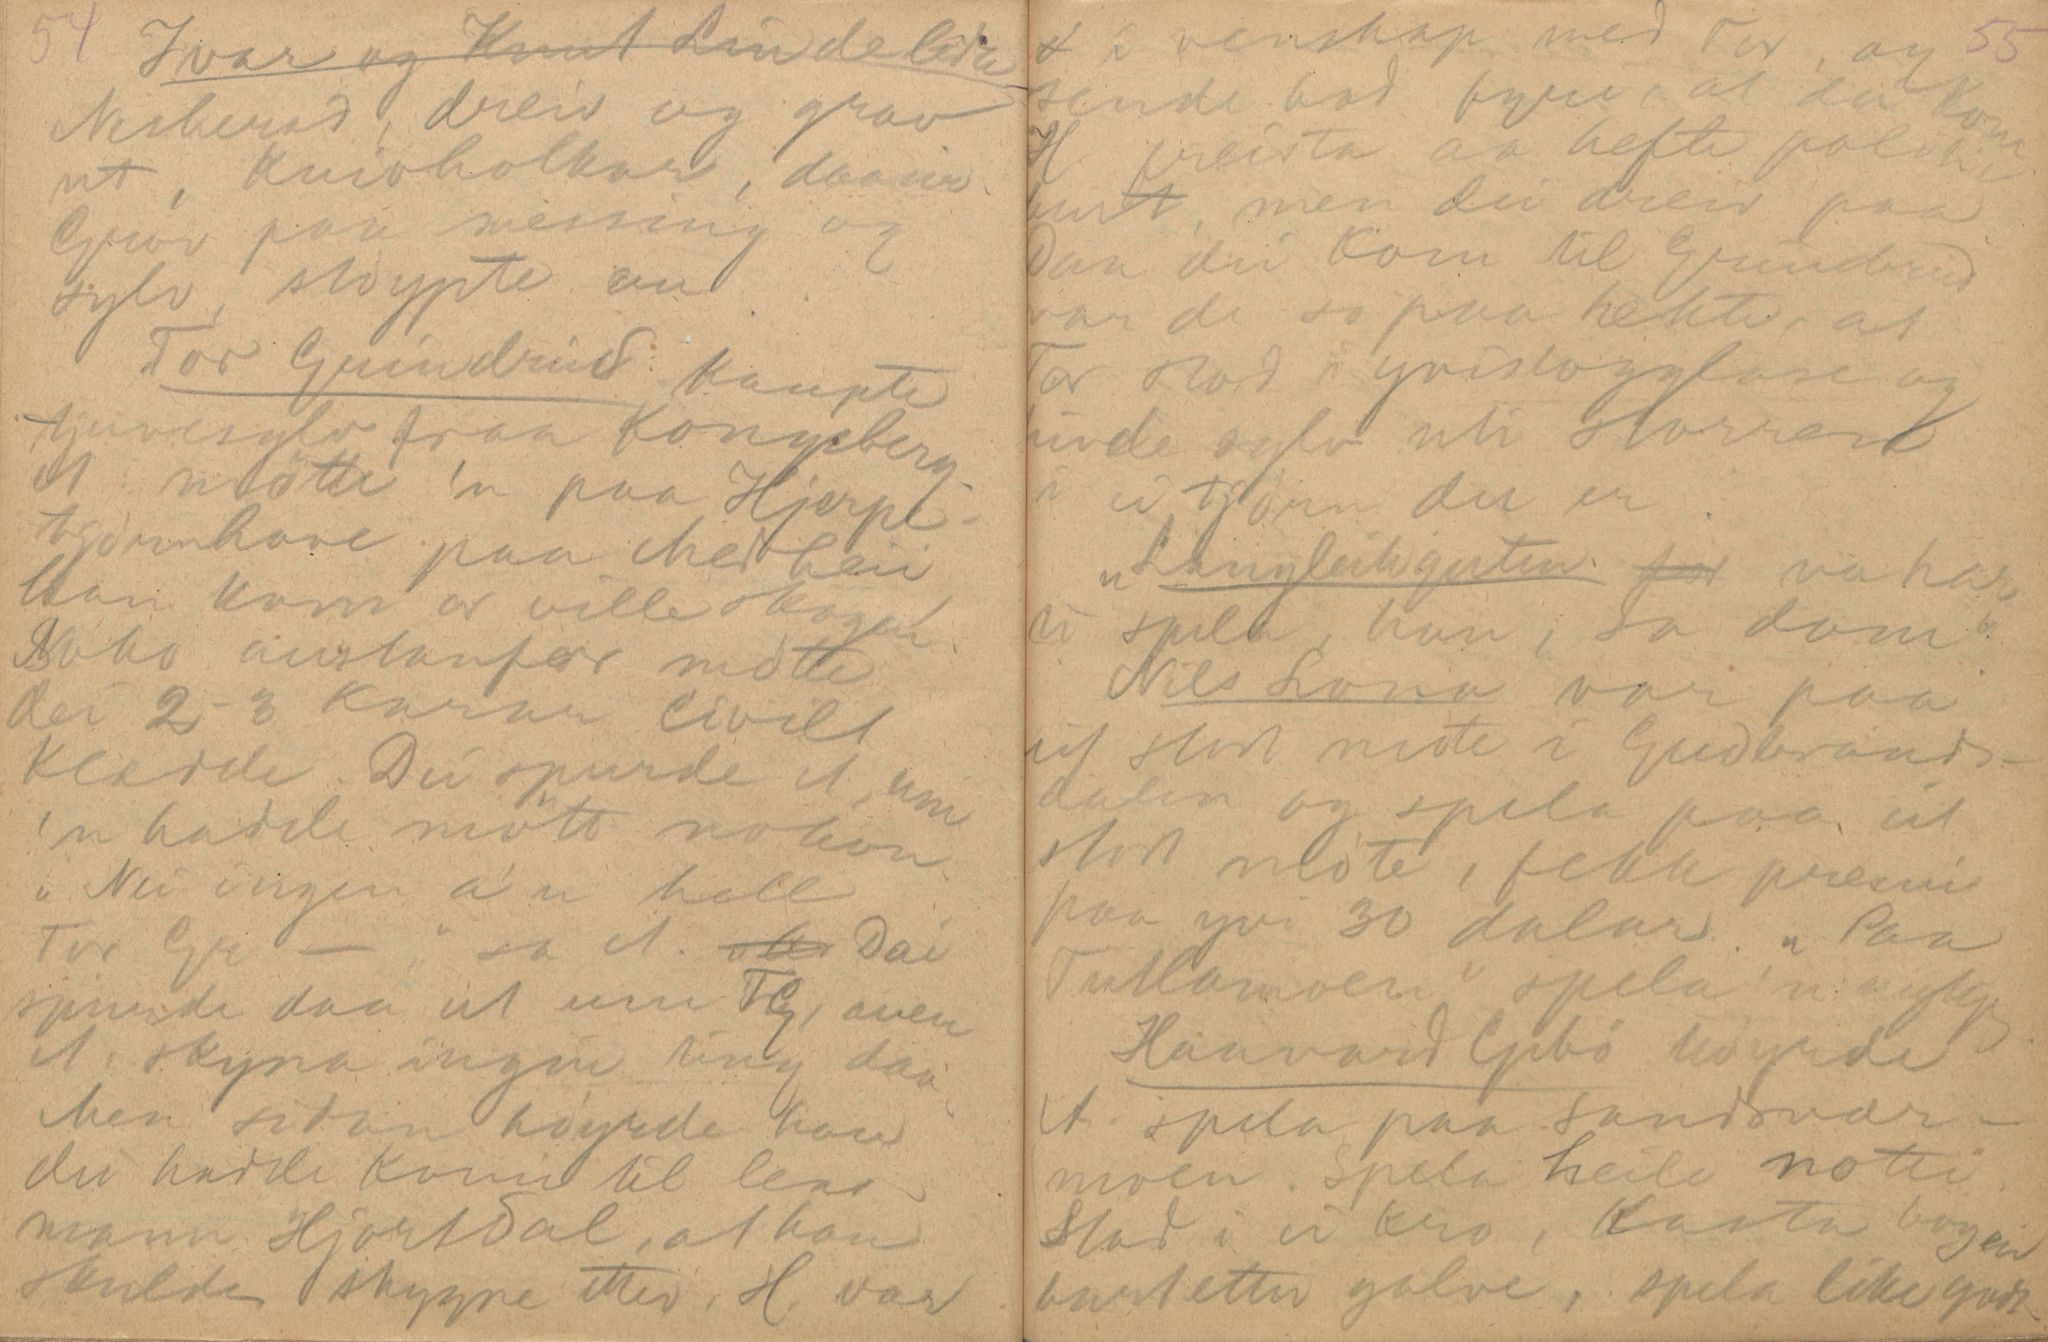 54
Ivar og Knut Lindelia
Nesherad, dreiv og grov
ut, knivholkar,
paa messing og
sylv, støypte au
Tor Grindrud kaupte
tjuvesylv fraa Kongsberg
A møtte 'n paa Hjerpe-
tjørnhove paa Medheii
Han kom or ville skogen
Noko austanfor møtte
dei 2-3 karar civilt
klædde. Dei spurde A, um
'n hadde møtt nokon
"Nei ingen a'n hell
Tor Gr —," sa A. Dai
spurde daa ut um TG, men
A. skyna ingin ting daa
Men sidan høyrde han
dei hadde komi til lens-
mann Hjartdal, at han
skulde skyggne etter. H. var
55
i venskap med Tor, og
sende bod fyre, at dei kom
H. freista aa hefte politie
burt, men dei dreiv paa
Daa dei kom til Grindrud
var de so paa hekte, at
Tor stod i og
sylv uti
i ei tjørn der er
"Langleikguten va har
te spela, han, sa dom"
Nils Lona var paa
eit stort møte i Gudbrands-
dalen og spela paa eit
stort møte, fekk premi
paa yvi 30 dalar. "Paa
spela 'n
Haavard Gibø høyrde
A. spela paa Sandsvær-
moen. Spela heile notti
Stod i ei kro, kasta bogen
burtetter golve, spela like godt